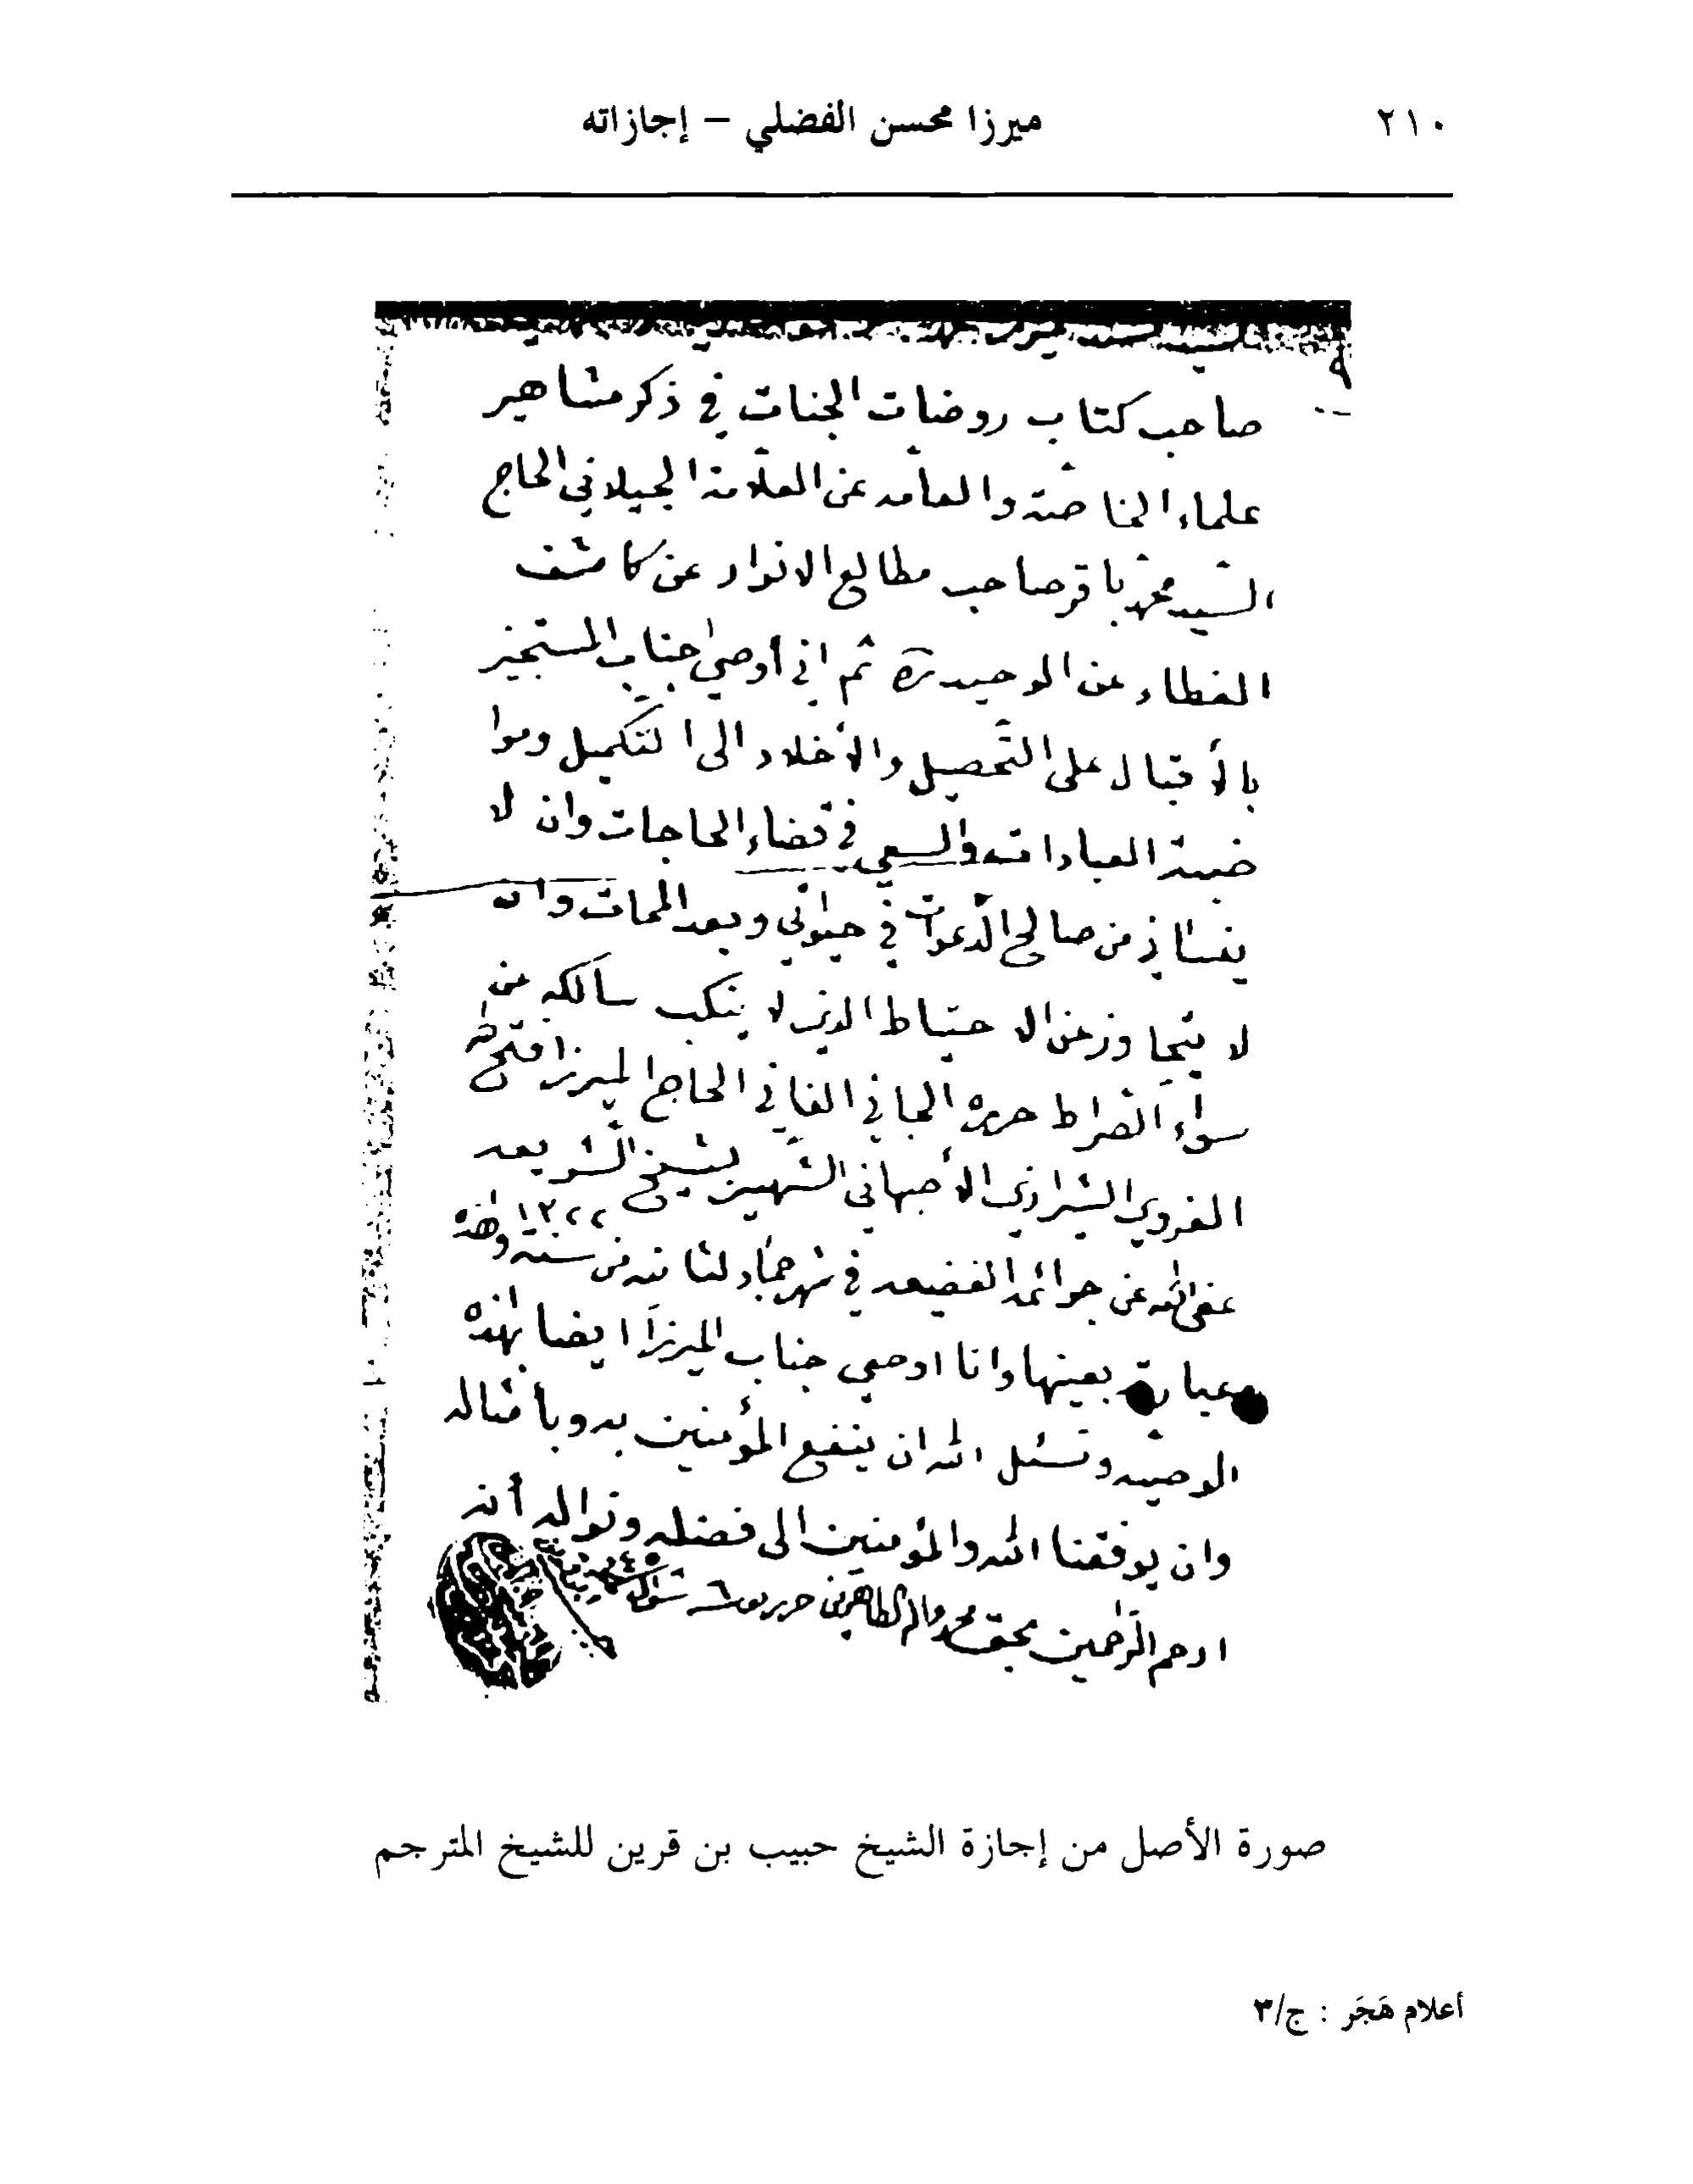 ٢١٠
ميرزا محسن الفضلي – إجازاته
صاحب كتاب روضات الجنات في ذكر مشاهير
علماء الخاصّة والعامّه عن العلّامة الجيلاني الحاج
السّيد محمّد باقر صاحب مطالع الانوار عن كاشف
الغطاء عن الوحيد ره ثم اني أوصي جناب المستجيز
بالأقبال على التّحصيل والأخلاد الى التّكميل وموا
ضبة العبادات والسعي في قضاء الحاجات وان لا
ينساني من صالح الدّعوات في حيوتي وبعد الممات وان
لا يتجاوز عن الاحتياط الذي لا ينكب سالكه عن
سواء الصّراط حرره الجاني الفاني الحاج الميرزا فتح الله
الغروي الشيرازي الأصبهاني الشّهير بشيخ الشّريعه
عفى الله عن جرائمه الفضيعه في شهر جماد لثانيه من سنة ١٣٢٢ وهذه
عبارته بعينها وانا اوصي جناب الميرزا ايضا بهذه
الوصيّه ونسئل الله ان ينفع المؤمنين به وبأمثاله
وان يوفقنا الله والمؤمنين الى فضله ونواله أنه
ارحم الرّاحمين بحق محمد واله الطاهرين حرر يوم ٦ شوال
صورة الأصل من إجازة الشيخ حبيب بن قرين للشيخ المترجم
أعلام هَجَر : ج/٣